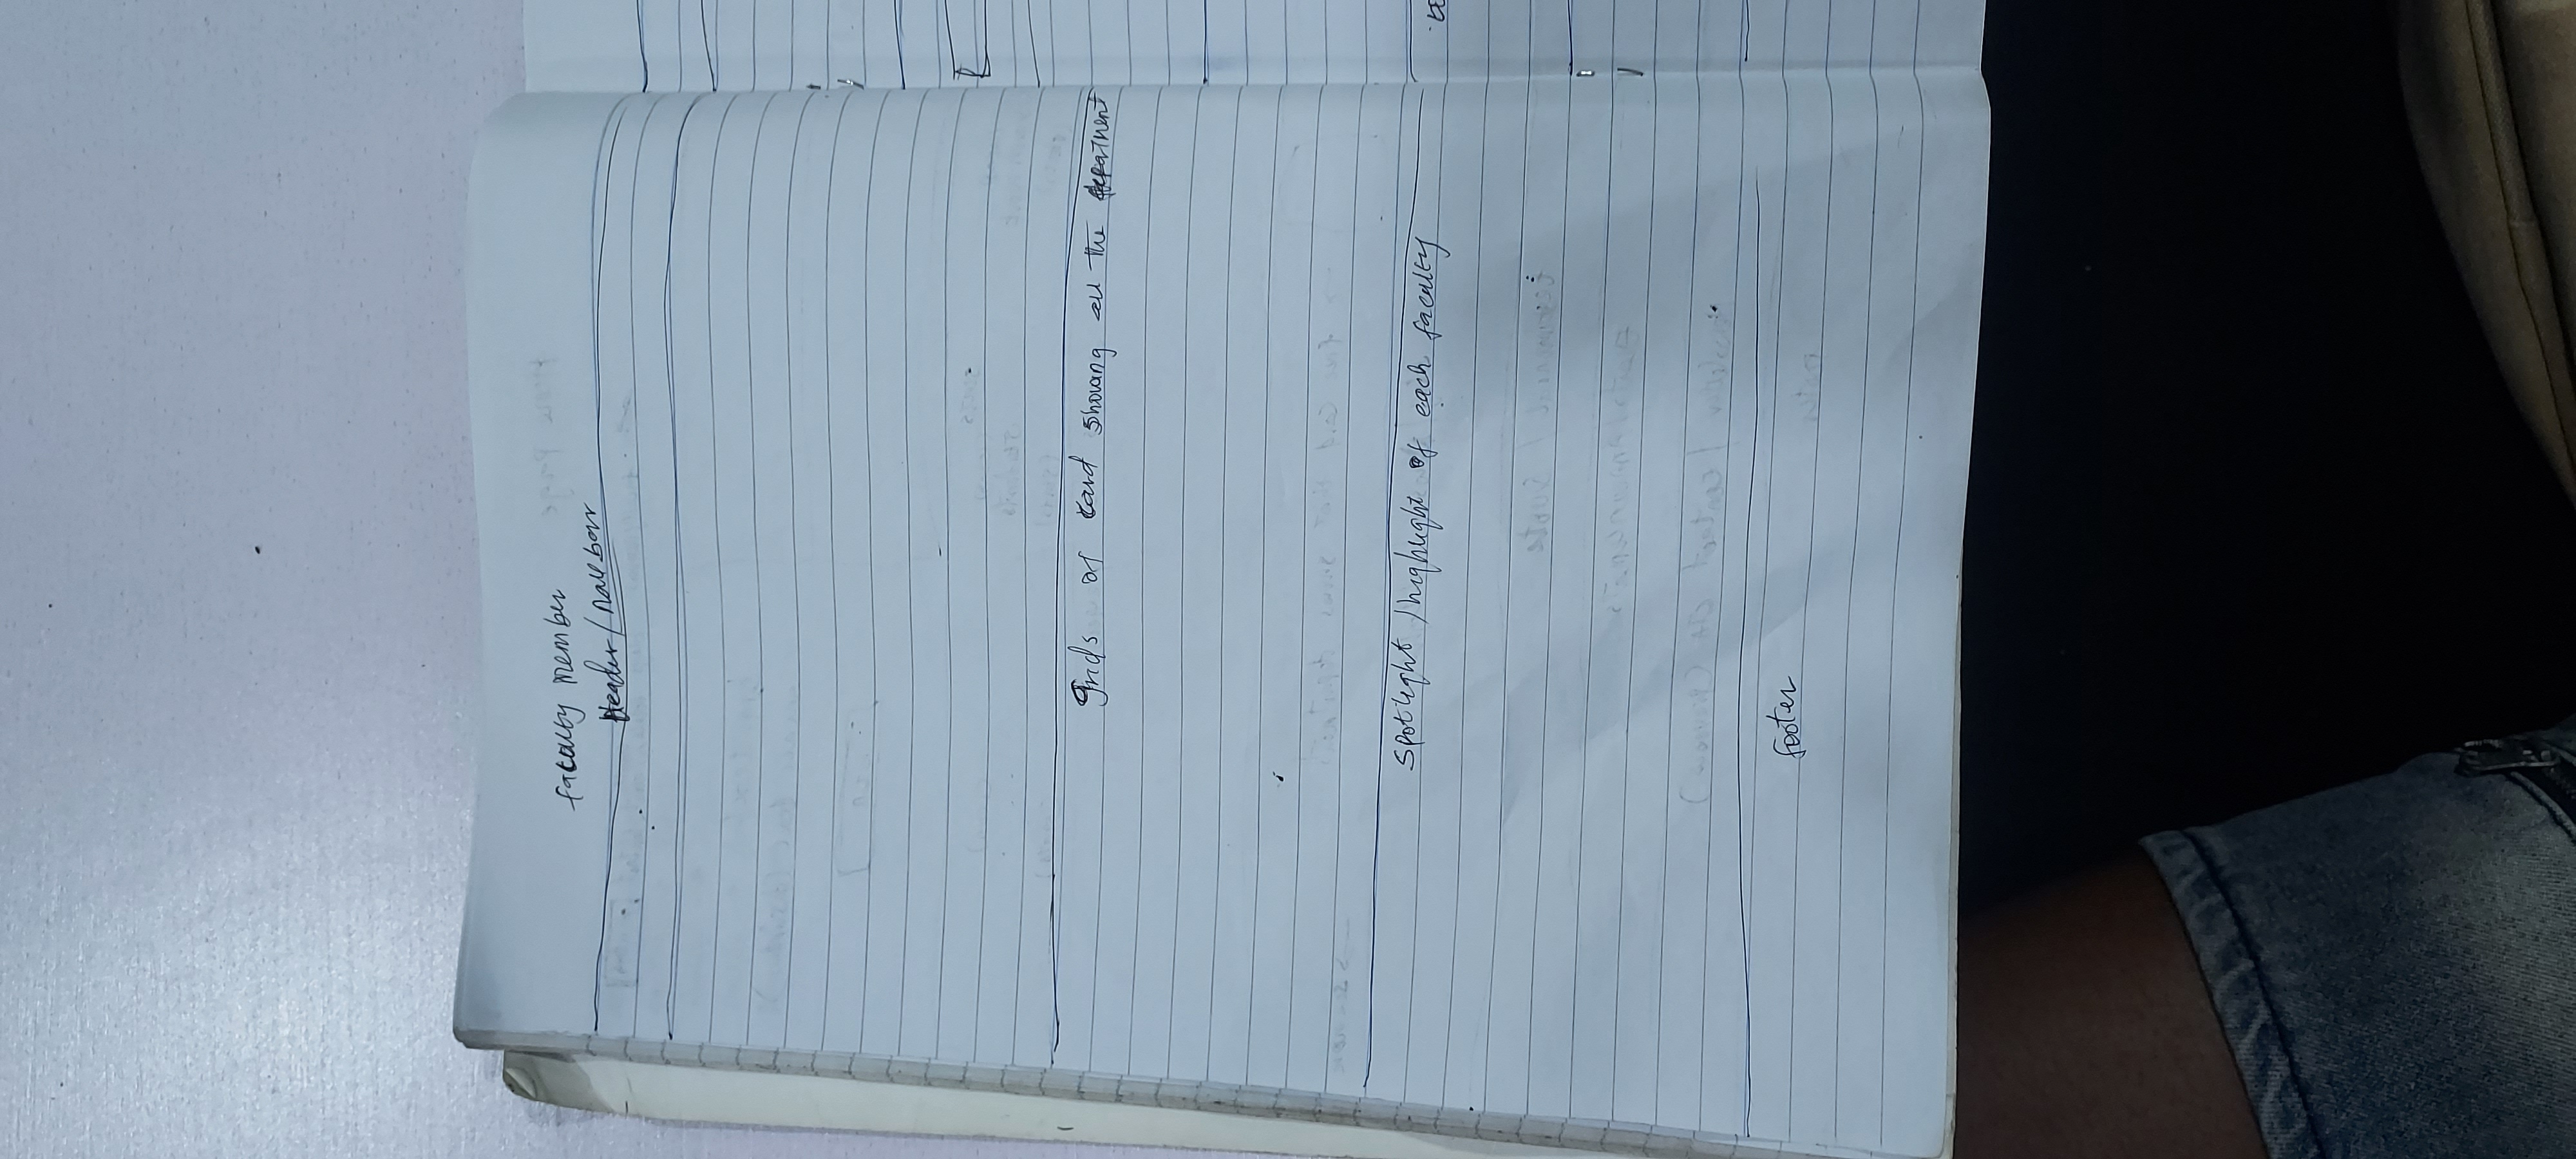 faculty member
Header/navbar
Grids of card showing all the department
spotlight /highlight of each faculty
footer